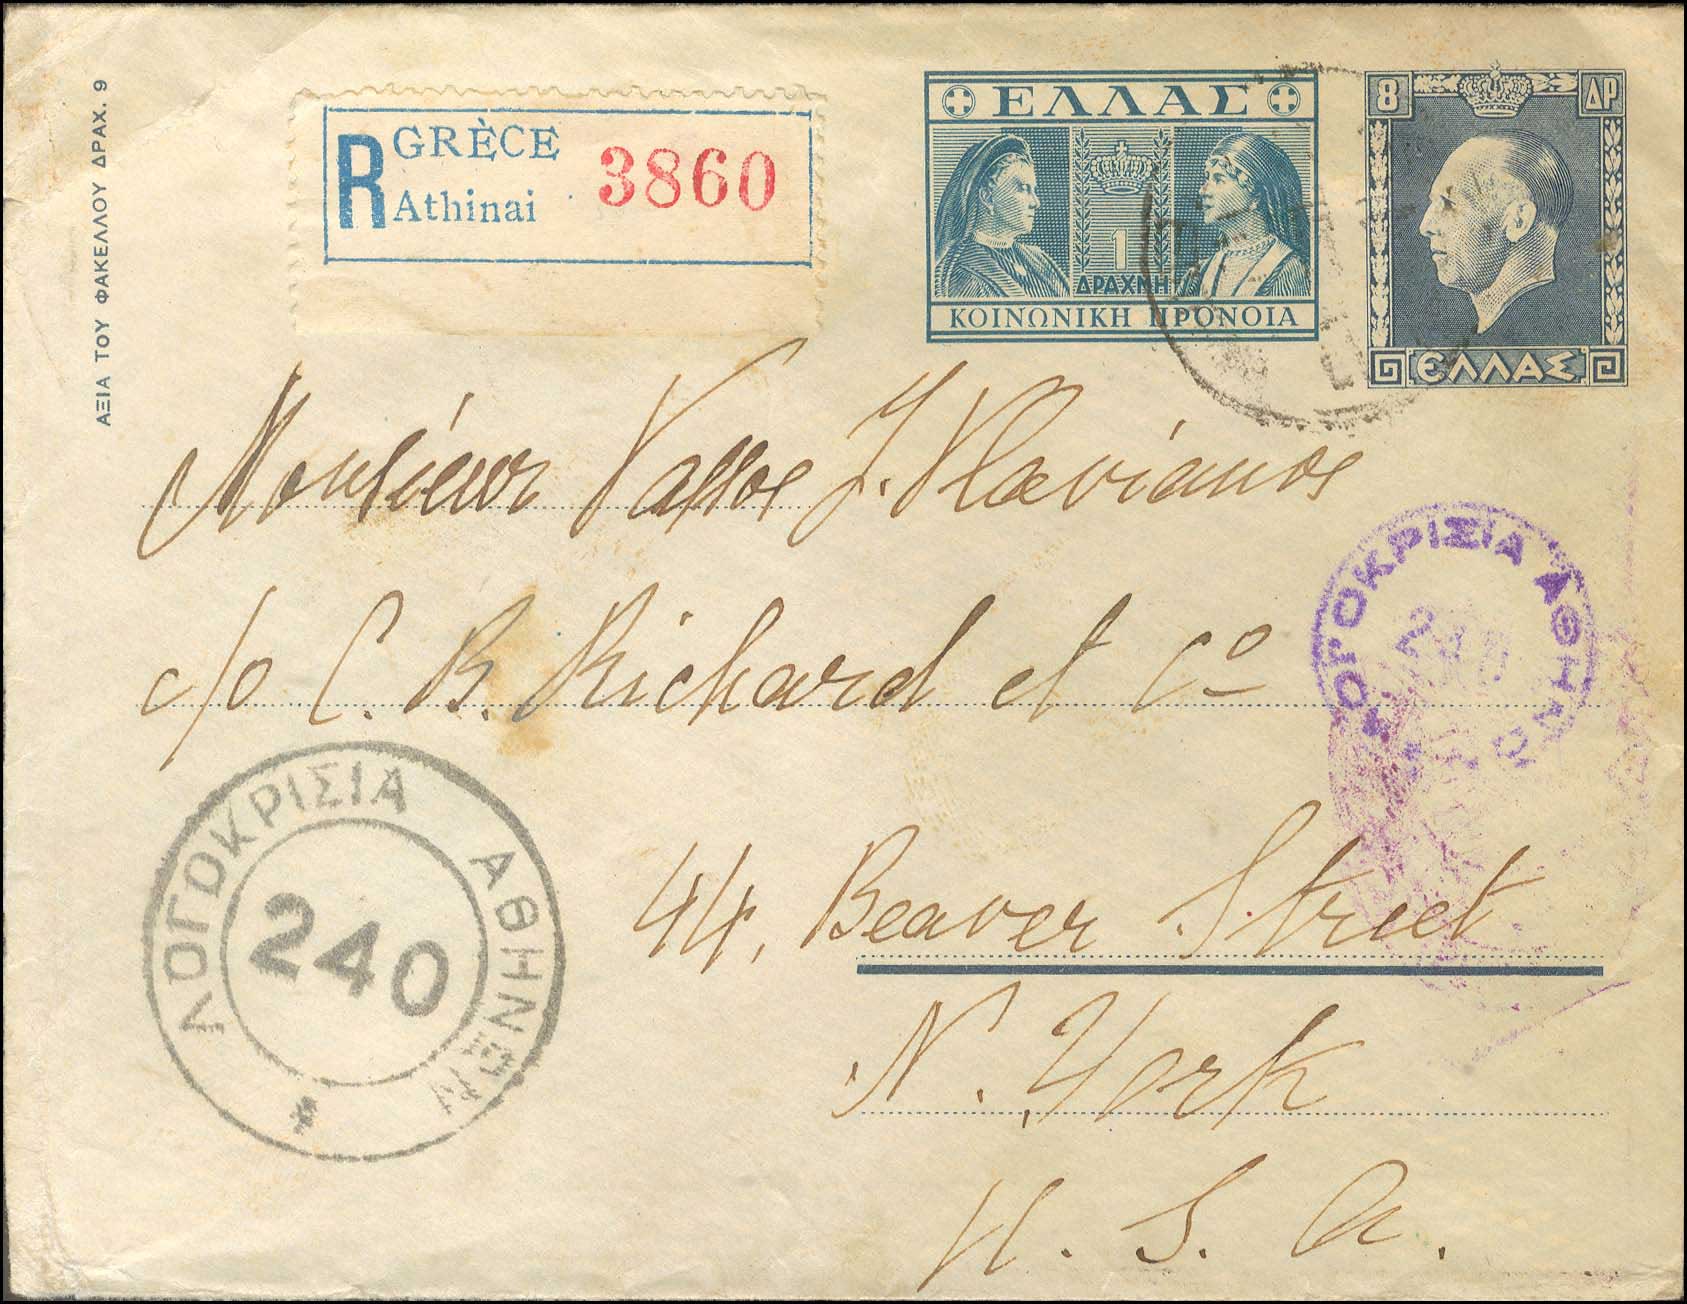 ΑΞΙΑ ΤΟΥ ΦΑΚΕΛΛΟΥ ΔΡΑΧ. 9
R GRÈCE
Athinai
3860
ΕΛΛΑΣ
1
ΔΡΑΧΜΗ
ΚΟΙΝΩΝΙΚΗ ΠΡΟΝΟΙΑ
8 ΔΡ
ΕΛΛΑΣ
Monsieur Vassos J. Vlavianos
c/o C. B. Richard et Cº
44, Beaver Street
N. York
U. S. A.
ΛΟΓΟΚΡΙΣΙΑ ΑΘΗΝΩΝ
240
ΛΟΓΟΚΡΙΣΙΑ ΑΘΗΝΩΝ
240